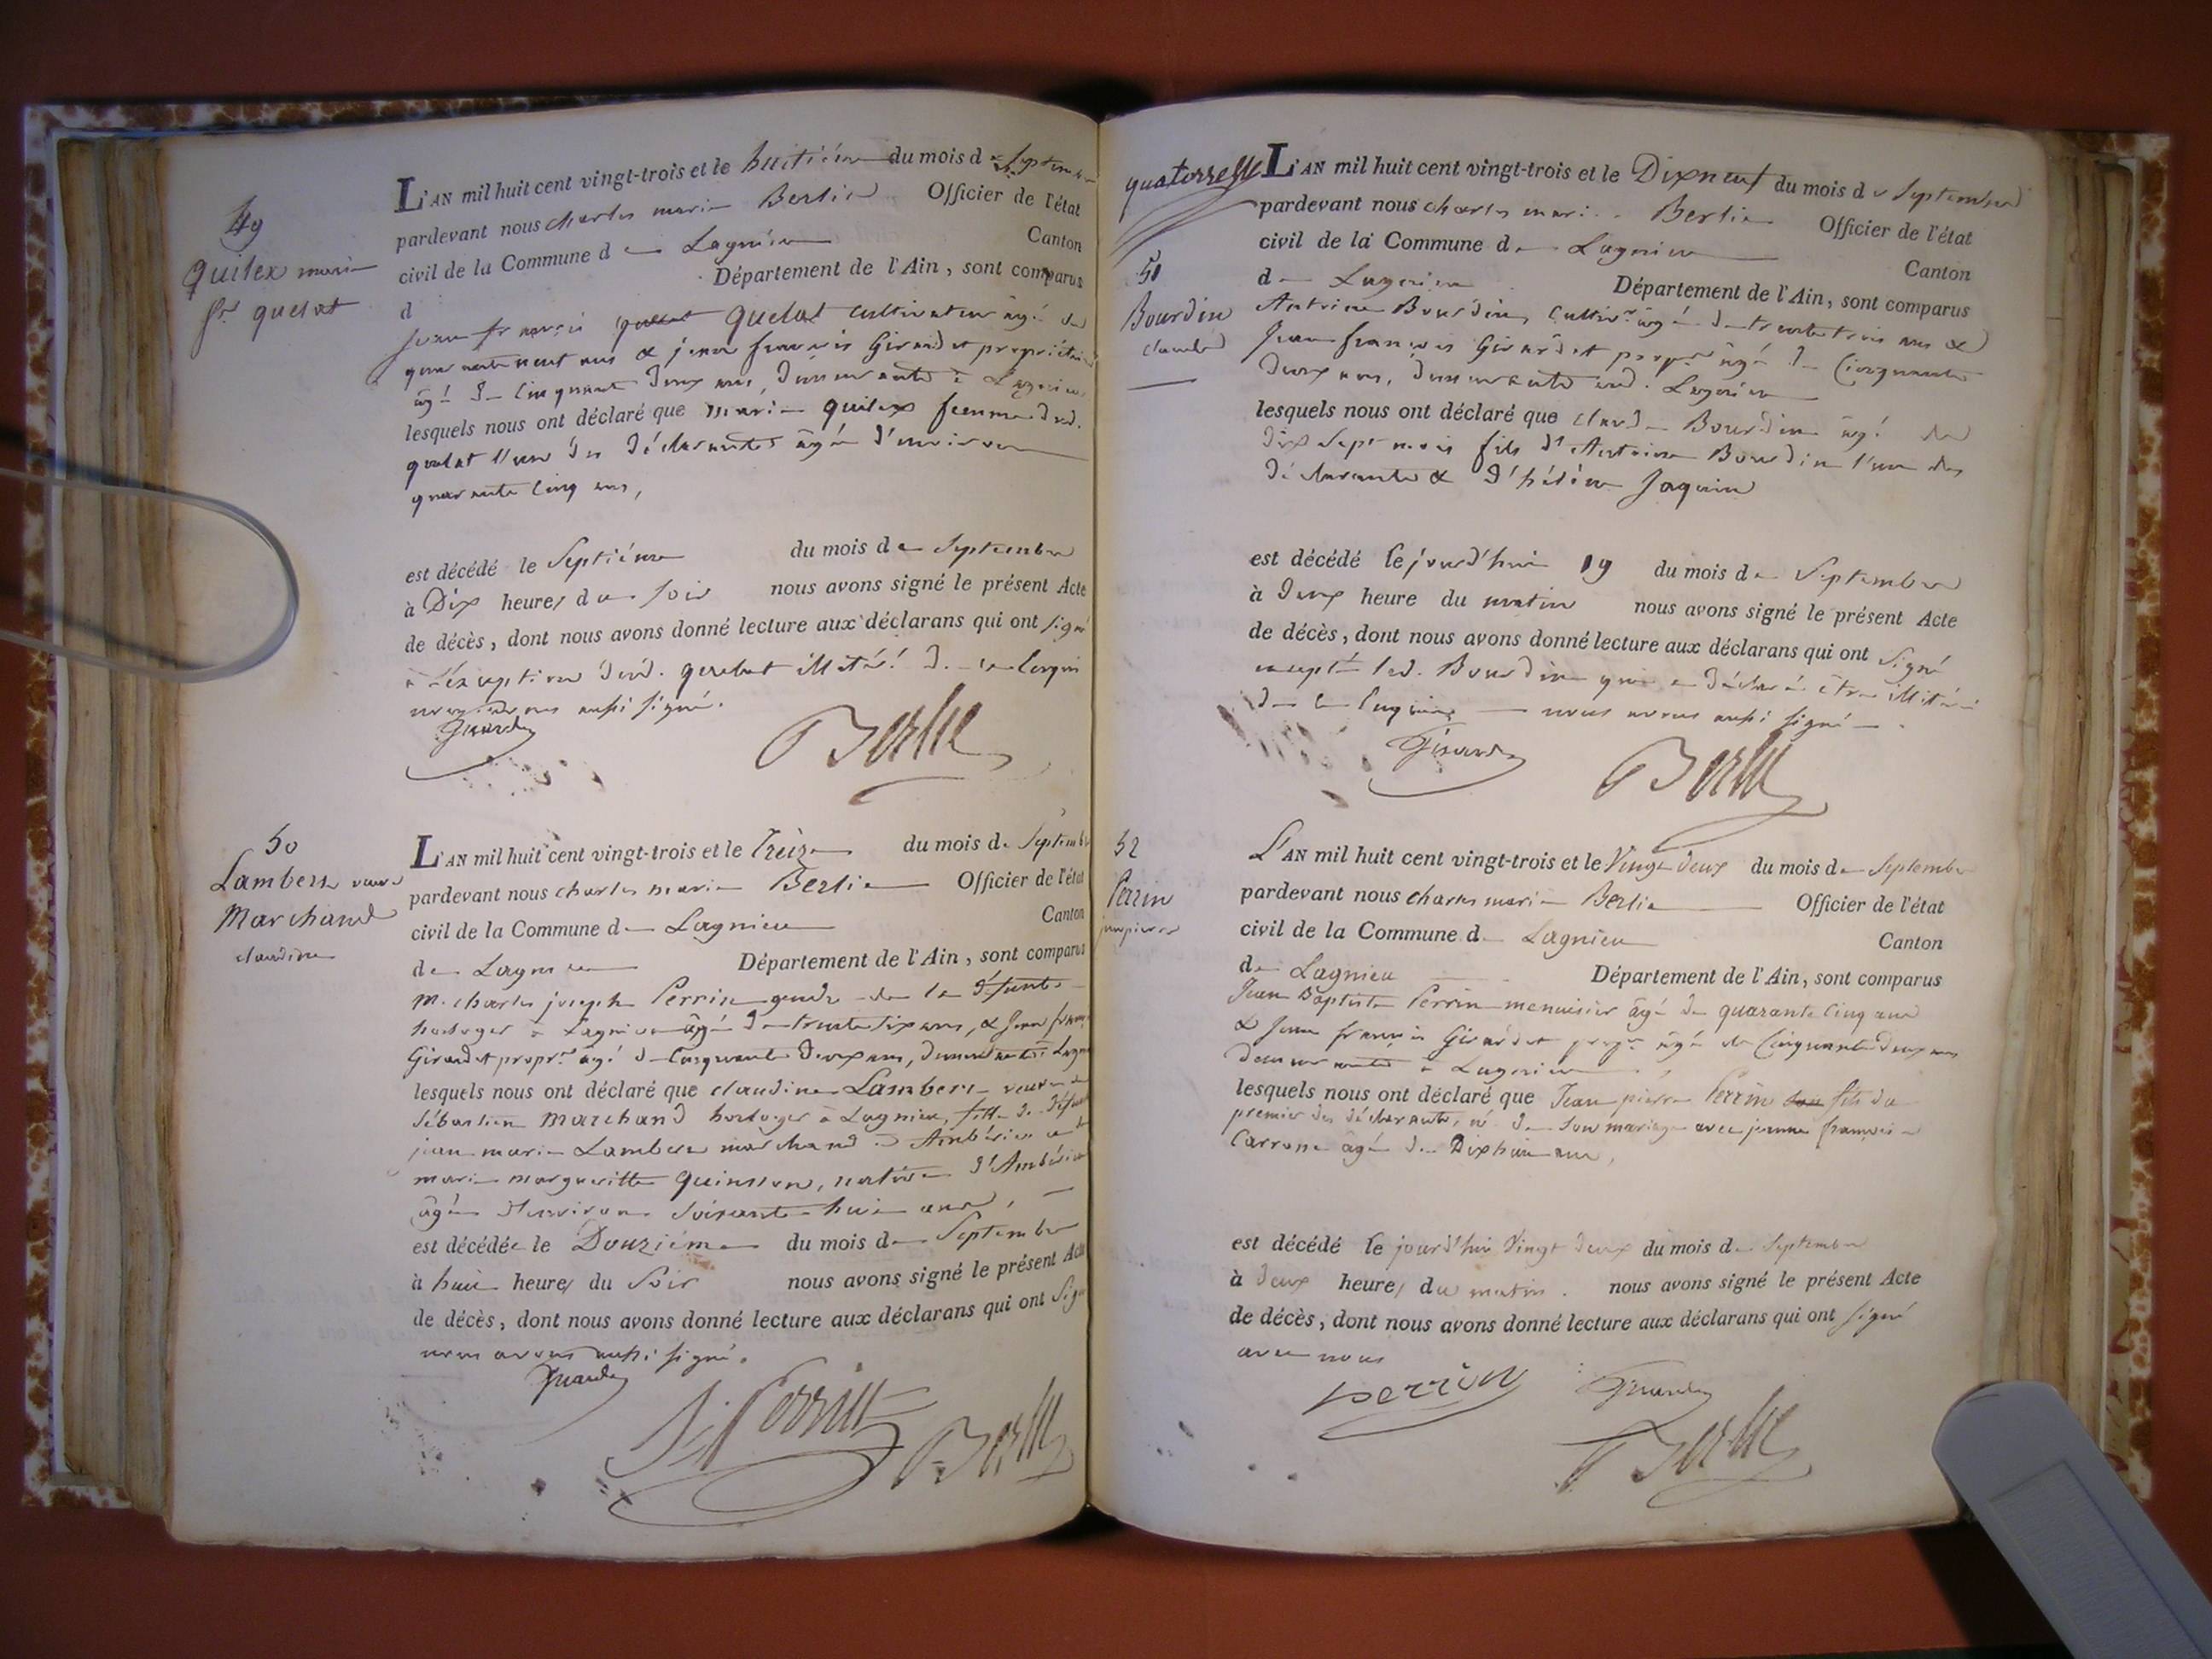 49
Quilex marie
fe quelat
L'AN mil huit cent vingt-trois et le huitième du mois de Septembre
pardevant nous charles marie Berlie Officier de l'état
civil de la Commune de Lagnieu Canton
d Département de l'Ain, sont comparus
Jean françois quelat cultivateur âgé de
quarante neuf ans & jean francois Girardet propriétaire
âgé de cinquante deux ans, demeurants à Lagnieu
lesquels nous ont déclaré que marie quilex femme dud.
quelat l'un des déclarants âgée d'environ
quarante cinq ans,
est décédé le Septième du mois de Septembre
à Dix heures du soir nous avons signé le présent Acte
de décès, dont nous avons donné lecture aux déclarans qui ont signé
à l'exception dud. quelat illitéré de ce enquis
nous avons aussi signé.
Girardet
Berlie
50
Lambert veuve
Marchand
claudine
L'AN mil huit cent vingt-trois et le Treize du mois de Septembre
pardevant nous charles marie Berlie Officier de l'état
civil de la Commune de Lagnieu Canton
de Lagnieu Département de l'Ain, sont comparus
M. charles joseph Perrin gendre de la défunte
horloger à Lagnieu âgé de trente six ans, & Jean françois
Girardet propre. âgé de cinquante deux ans, demeurants à Lagnieu
lesquels nous ont déclaré que claudine Lambert veuve de
Sébastien Marchand horloger à Lagnieu, fille de défunt
jean marie Lambert marchand à Ambérieu &
marie margueritte Quinson, native d'Ambérieu
âgée d'environ soixante huit ans,
est décédée le Douzième du mois de Septembre
à huit heures du Soir nous avons signé le présent Acte
de décès, dont nous avons donné lecture aux déclarans qui ont Signé
nous avons aussi signé.
Girardet
Perrin
Berlie
quatorze
51
Bourdin
claude
L'AN mil huit cent vingt-trois et le Dixneuf du mois de Septembre
pardevant nous charles marie Berlie Officier de l'état
civil de la Commune de Lagnieu Canton
de Lagnieu Département de l'Ain, sont comparus
Antoine Bourdin, cultivr. âgé de trente trois ans &
Jean françois Girardet propre. âgé de Cinquante
deux ans, demeurants aud. Lagnieu
lesquels nous ont déclaré que claude Bourdin âgé de
dix sept mois fils d'Antoine Bourdin l'un des
déclarants & d'hélène Jaquin
est décédé le jourd'hui 19 du mois de Septembre
à deux heure du matin nous avons signé le présent Acte
de décès, dont nous avons donné lecture aux déclarans qui ont Signé
excepté led. Bourdin qui a déclaré être illitéré
de ce enquis nous avons aussi signé
Girardet
Berlie
52
Perrin
jean pierre
L'AN mil huit cent vingt-trois et le Vingt deux du mois de Septembre
pardevant nous charles marie Berlie Officier de l'état
civil de la Commune de Lagnieu Canton
de Lagnieu Département de l'Ain, sont comparus
Jean Baptiste Perrin menuisier âgé de quarante cinq ans
& Jean francois Girardet propre. âgé de Cinquante deux ans
demeurants à Lagnieu
lesquels nous ont déclaré que Jean pierre Perrin son fils du
premier des déclarants, né de son mariage avec jeanne françoise
Carron âgé de Dixhuit ans,
est décédé le jourd'hui Vingt deux du mois de Septembre
à deux heures du matin. nous avons signé le présent Acte
de décès, dont nous avons donné lecture aux déclarans qui ont signé
avec nous
perrin
Girardet
Berlie